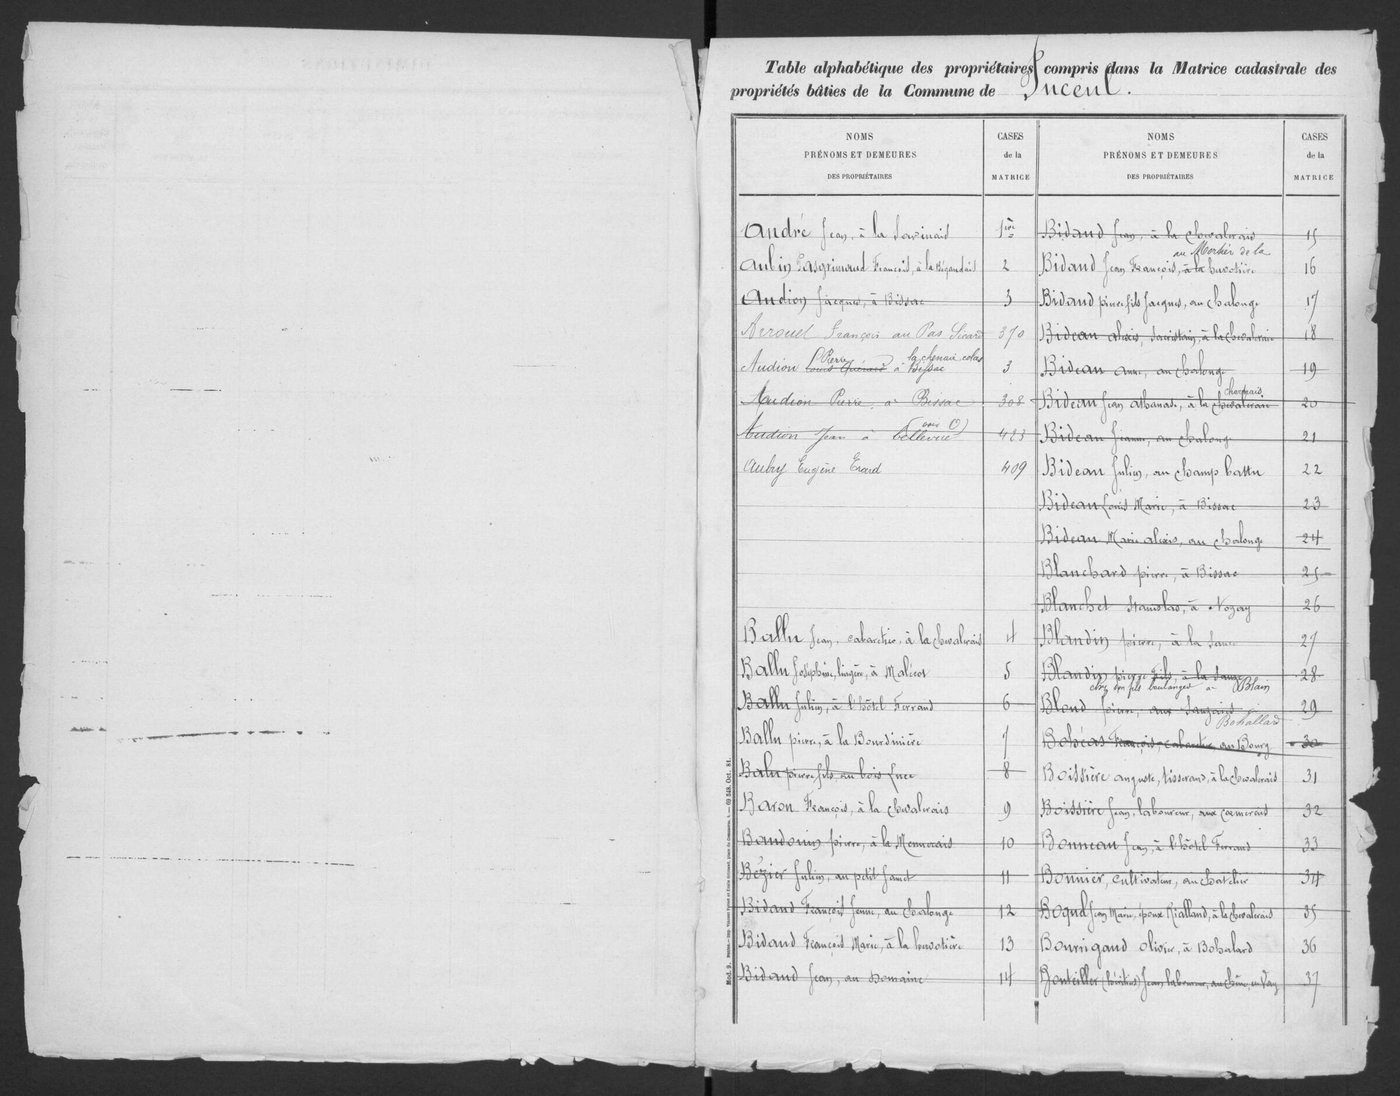 Table alphabétique des propriétaires compris dans la Matrice cadastrale des
propriétés bâties de la Commune de Juceul.
NOMS
PRÉNOMS ET DEMEURES
DES PROPRIÉTAIRES
CASES
de la
MATRICE
André Jean, à la 1ère
Aubin François, à la 2
Audion Jacques, à Bissac 3
François au Pas 370
Pierre la chenaie colas
Audion Louis à Bissac 3
Audion Pierre, à Bissac 308
Audion Jean à Bellevue 423
Aubry Eugène Erard 409
Ballu Jean, cabaretier, à la Chevalerais 4
Ballu Joséphine, lingère, à Malécot 5
Ballu Julien, à l'hôtel Ferrand 6
Ballu pierre, à la Bourdinière 7
Balu pierre fils, au bois Luce 8
Baron François, à la Chevalerais 9
Baudouin pierre, à la Mennerais 10
Bézier Julien, au petit Jamet 11
Bidaud François Jeune, au Chalonge 12
Bidaud François Marie, à la huvotière 13
Bidaud Jean, au Domaine 14
NOMS
PRÉNOMS ET DEMEURES
DES PROPRIÉTAIRES
CASES
de la
MATRICE
Bidaud Jean, à la Chevalerais 15
au Mortier de la
Bidaud Jean François, à la huvotière 16
Bidaud pierre fils Jacques, au Chalonge 17
Bideau Alexis, Sacristain, à la Chevalerais 18
Bideau Anne, au Chalonge 19
Bideau Jean Athanase, à la Chevalerais 20
Bideau Jeanne, au Chalonge 21
Bideau Julien, au Champ battu 22
Bideau Louis Marie, à Bissac 23
Bideau Marie Alexis, au Chalonge 24
Blanchard pierre, à Bissac 25
Blanchet Stanislas, à Nozay 26
Blandin pierre, à la 27
Blandin pierre fils, à la 28
chez son fils boulanger à Blain
Blond pierre, aux 29
Bohallard
Bohéas François, cabaretier au Bourg 30
Boissière auguste, tisserand, à la Chevalerais 31
Boissière Jean, laboureur, aux 32
Bonneau Jean, à l'hôtel Ferrand 33
Bonnier, cultivateur, au Chatelier 34
Boqual Jean Marie, époux Rialland, à la Chevalerais 35
Bourrigaud Olivier, à Bohalard 36
Bouteiller (héritiers) Jean laboureur, au Chêne, en Vay 37